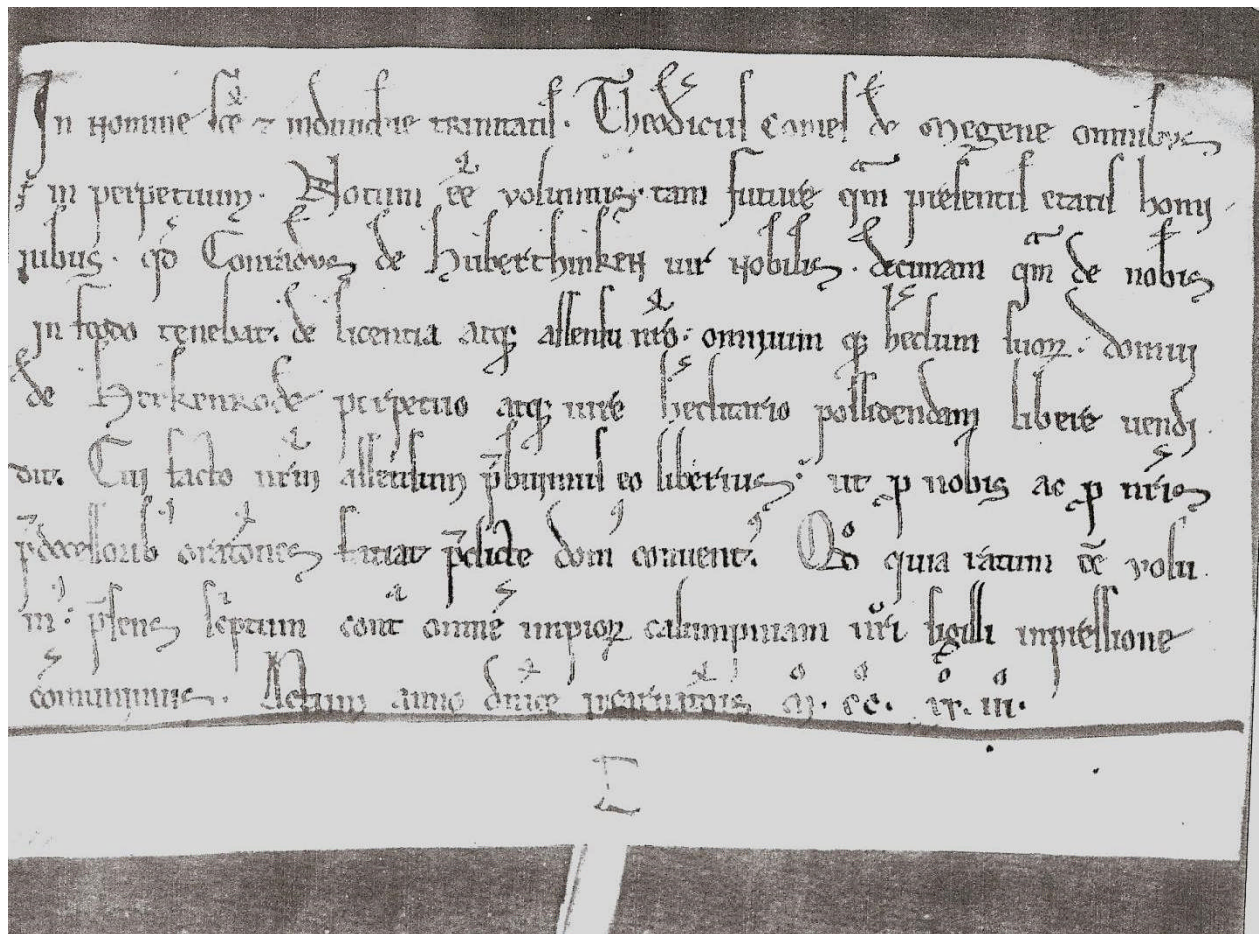 In nomine sce ⁊ indiuidue trinitatis. Theodicus Comes de Megene omnibus
in perpetuum. Notum ee volumus. tam future qm presentis etatis homi
nibus. qd Conradus de Huberthinken uir nobilis. decimam qm de nobis
in feodo tenebat. de licentia atq; assensu nro. omnium q; hedum suoꝝ. domui
de Herkenrode perpetuo atq; iure heditario possidendam libere uendi
dit. Cui facto nrm assensum pbuimus eo liberius. ut p nobis ac p nris
pdecessorib orationes faciat pdicte dom conuent. Qd quia ratum ee volu
m. psens scptum cont omne impioꝝ calumpniam nri sigilli inpressione
comunimus. Actum anno dnice incarnationis m. cc.